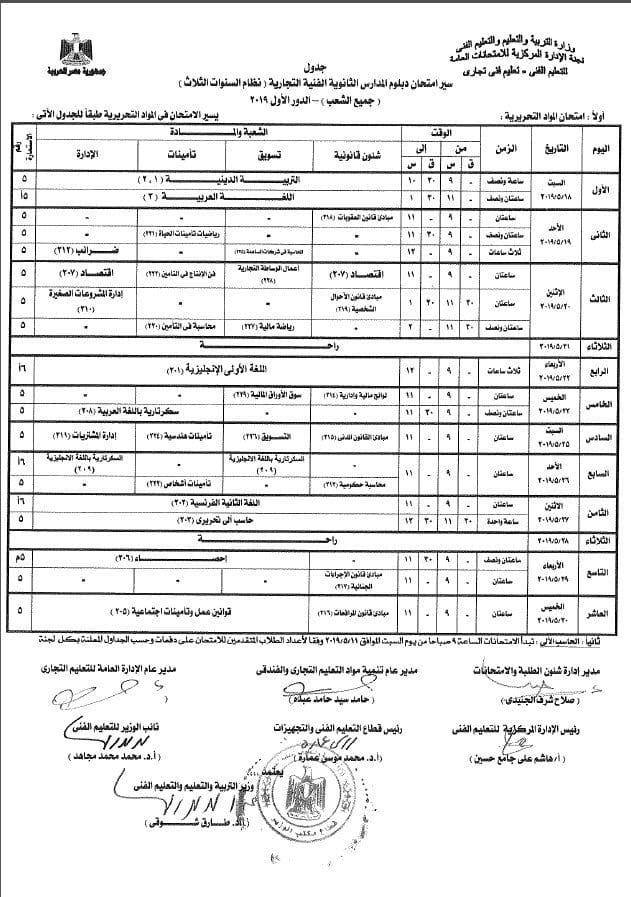 وزارة التربية والتعليم والتعليم الفنى
لجنة الإدارة المركزية للامتحانات العامة
للتعليم الفنى - تعليم فنى تجارى
جمهورية مصر العربية
جدول
سير امتحان دبلوم المدارس الثانوية الفنية التجارية ( نظام السنوات الثلاث )
( جميع الشعب ) – الدور الأول ٢٠١٩
أولاً : امتحان المواد التحريرية : يسير الامتحان فى المواد التحريرية طبقاً للجدول الأتى :
اليوم التاريخ الزمن الوقت الشعبة والمــادة رقم الاستمارة
من إلى شئون قانونية تسويق تأمينات الإدارة
ق س ق س
الأول السبت ٢٠١٩/٥/١٨ ساعة ونصف - ٩ ٣٠ ١٠ التربية الدينية (٢،١) ٥
ساعتان ونصف - ١١ ٣٠ ١ اللغة العربية (٣) ١٥
الثانى الأحد ٢٠١٩/٥/١٩ ساعتان - ٩ - ١١ مبادئ قانون العقوبات (٣١٨) - - - ٥
ساعتان ونصف - ٩ ٣٠ ١١ - - رياضيات تأمينات الحياة (٢٢١) - ٥
ثلاث ساعات - ٩ - ١٢ - المحاسبة فى شركات المساهمة - ضرائب (٢١٢) ٥
الثالث الاثنين ٢٠١٩/٥/٢٠ ساعتان - ٩ - ١١ اقتصاد (٢٠٧) أعمال الوساطة التجارية (٢٢٨) فن الإنتاج فى التأمين (٢٢٣) اقتصاد (٢٠٧) ٥
ساعتان ٢٠ ١١ ٢٠ ١ مبادئ قانون الأحوال الشخصية (٢١٩) - - إدارة المشروعات الصغيرة (٢١٠) ٥
ساعتان ونصف ٣٠ ١١ - ٢ - رياضة مالية (٢٢٧) محاسبة فى التأمين (٢٢٠) - ٥
الثلاثاء ٢٠١٩/٥/٢١ راحــة
الرابع الأربعاء ٢٠١٩/٥/٢٢ ثلاث ساعات - ٩ - ١٢ اللغة الأولى الإنجليزية (٢٠١) ١٦
الخامس الخميس ٢٠١٩/٥/٢٣ ساعتان - ٩ - ١١ لوائح مالية وإدارية (٢١٤) سوق الأوراق المالية (٢٢٩) - - ٥
ساعتان ونصف - ٩ ٣٠ ١١ - - سكرتارية باللغة العربية (٢٠٨) ٥
السادس السبت ٢٠١٩/٥/٢٥ ساعتان - ٩ - ١١ مبادئ القانون المدنى (٢١٥) التسويق (٢٢٦) تأمينات هندسية (٢٢٤) إدارة المشتريات (٢١١) ٥
السابع الأحد ٢٠١٩/٥/٢٦ ساعتان - ٩ - ١١ - السكرتارية باللغة الانجليزية (٢٠٩) - السكرتارية باللغة الانجليزية (٢٠٩) ١٦
محاسبة حكومية (٢١٣) - تأمينات أشخاص (٢٢٢) - ٥
الثامن الاثنين ٢٠١٩/٥/٢٧ ساعتان - ٩ - ١١ اللغة الثانية الفرنسية (٢٠٢) ١٦
ساعة واحدة ٣٠ ١١ ٣٠ ١٢ حاسب آلى تحريرى (٢٠٣) ٥
الثلاثاء ٢٠١٩/٥/٢٨ راحــة
التاسع الأربعاء ٢٠١٩/٥/٢٩ ساعتان ونصف - ٩ ٣٠ ١١ - إحصــاء (٢٠٦) ٥م
ساعتان - ٩ - ١١ مبادئ قانون الإجراءات الجنائية (٢١٧) - - - ٥
العاشر الخميس ٢٠١٩/٥/٣٠ ساعتان - ٩ - ١١ مبادئ قانون المرافعات (٢١٦) قوانين عمل وتأمينات اجتماعية (٢٠٥) ٥
ثانياً : الحاسب الآلى : تبدأ الامتحانات الساعة ٩ صباحا من يوم السبت الموافق ٢٠١٩/٥/١١ وفقا لأعداد الطلاب المتقدمين للامتحان على دفعات وحسب الجداول المعلنة بكل لجنة
مدير إدارة شئون الطلبة والامتحانات مدير عام تنمية مواد التعليم التجارى والفندقى مدير عام الإدارة العامة للتعليم التجارى
(صلاح شرف الجنيدى) (حامد سيد حامد عبده)
رئيس الإدارة المركزية للتعليم الفنى رئيس قطاع التعليم الفنى والتجهيزات نائب الوزير للتعليم الفنى
(أ/هاشم على جامع حسين) (أ.د. محمد موسى عمارة) (أ.د. محمد محمد مجاهد)
يعتمد ...
وزير التربية والتعليم والتعليم الفنى
(أ.د. طارق شــوقى)
قطاع مكتب الوزير